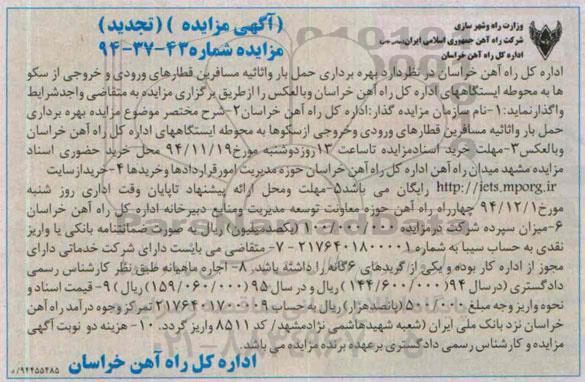 وزارت راه وشهر سازی
شرکت راه آهن جمهوری اسلامی ایران
اداره کل راه آهن خراسان
(آگهی مزایده ) (تجدید)
مزایده شماره ۴۳-۳۷-۹۴
اداره کل راه آهن خراسان در نظردارد بهره برداری حمل بار واثاثیه مسافرین قطارهای ورودی و خروجی از سکو
ها به محوطه ایستگاههای اداره کل راه آهن خراسان وبالعکس را ازطریق برگزاری مزایده به متقاضی واجدشرایط
واگذارنماید: ۱-نام سازمان مزایده گذار:اداره کل راه آهن خراسان۲-شرح مختصر موضوع مزایده بهره برداری
حمل بار واثاثیه مسافرین قطارهای ورودی وخروجی ازسکوها به محوطه ایستگاههای اداره کل راه آهن خراسان
وبالعکس۳-مهلت خرید اسنادمزایده تاساعت ۱۳روزدوشنبه مورخ۹۴/۱۱/۱۹ محل خرید حضوری اسناد
مزایده مشهد میدان راه آهن اداره کل راه آهن خراسان حوزه مدیریت امورقراردادها وخریدها ۴-خریدازسایت
http://iets.mporg.ir رایگان می باشد۵-مهلت ومحل ارائه پیشنهاد تاپایان وقت اداری روز شنبه
مورخ۹۴/۱۲/۱ چهارراه راه آهن حوزه معاونت توسعه مدیریت ومنابع دبیرخانه اداره کل راه آهن خراسان
۶-میزان سپرده شرکت درمزایده ۱۰۰/۰۰۰/۰۰۰ (یکصدمیلیون) ریال به صورت ضمانتنامه بانکی یا واریز
نقدی به حساب سیبا به شماره ۲۱۷۶۴۰۱۸۰۰۰۰۱ ۷- متقاضی می بایست دارای شرکت خدماتی دارای
مجوز از اداره کار بوده و یکی از گریدهای ۶گانه را داشته باشد. ۸- اجاره ماهیانه طبق نظر کارشناس رسمی
دادگستری (درسال ۹۴ (۱۴۴/۶۰۰/۰۰۰) ریال و در سال ۹۵ (۱۵۹/۰۶۰/۰۰۰) ریال) ۹- قیمت اسناد و
نحوه واریز وجه مبلغ ۵۰۰/۰۰۰ (پانصدهزار) ریال به حساب ۲۱۷۶۴۰۲۱۷۰۰۰۹ تمرکز وجوه درآمد راه آهن
خراسان نزد بانک ملی ایران (شعبه شهیدهاشمی نژادمشهد/ کد ۸۵۱۱ واریز گردد. ۱۰- هزینه دو نوبت آگهی
مزایده و کارشناس رسمی دادگستری برعهده برنده مزایده می باشد.
اداره کل راه آهن خراسان